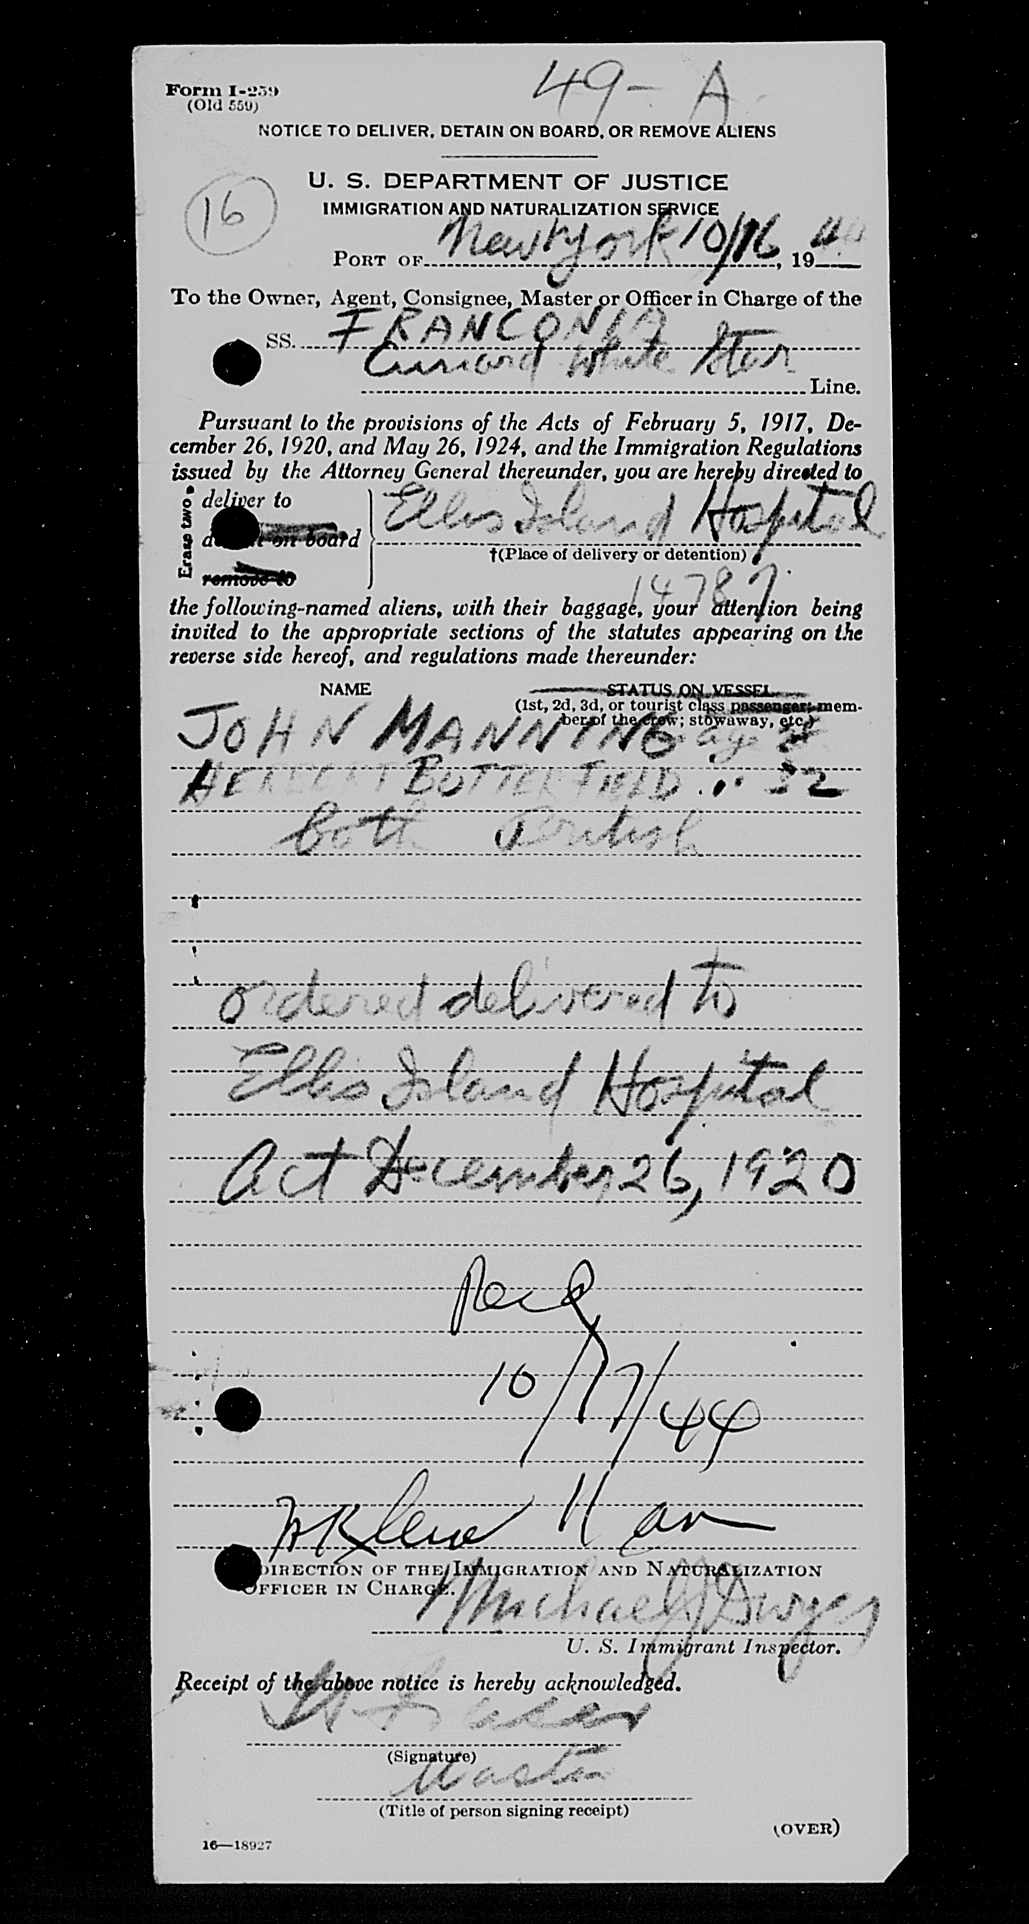 49- A
Form I-259
(Old 559)
NOTICE TO DELIVER, DETAIN ON BOARD, OR REMOVE ALIENS
U. S. DEPARTMENT OF JUSTICE
16
IMMIGRATION AND NATURALIZATION SERVICE
PORT OF New York 10/16, 1944
To the Owner, Agent, Consignee, Master or Officer in Charge of the
SS. FRANCONIA
Cunard White Star Line.
Pursuant to the provisions of the Acts of February 5, 1917, De-
cember 26, 1920, and May 26, 1924, and the Immigration Regulations
issued by the Attorney General thereunder, you are hereby directed to
Erase two
deliver to
detain on board
remove to
Ellis Island Hospital
†(Place of delivery or detention)
14787
the following-named aliens, with their baggage, your attention being
invited to the appropriate sections of the statutes appearing on the
reverse side hereof, and regulations made thereunder:
NAME STATUS ON VESSEL
(1st, 2d, 3d, or tourist class passenger; mem-
ber of the crew; stowaway, etc.)
JOHN MANNING age
HERBERT BUTTERFIELD " 32
both British
ordered delivered to
Ellis Island Hospital
Act December 26, 1920
Rec'd
10/17/44
11 am
DIRECTION OF THE IMMIGRATION AND NATURALIZATION
OFFICER IN CHARGE.
Michael J Dwyer
U. S. Immigrant Inspector.
Receipt of the above notice is hereby acknowledged.
(Signature)
Master
(Title of person signing receipt)
(OVER)
16—18927